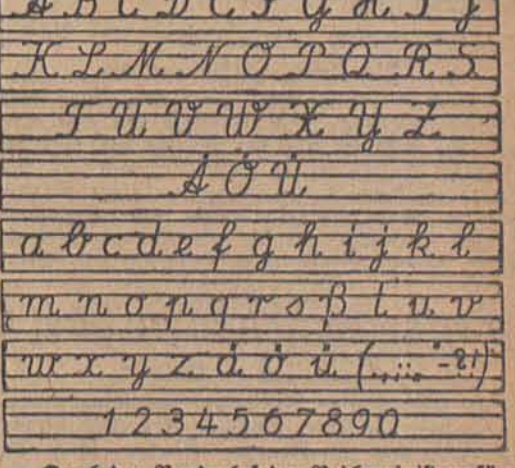 A B C D E F G H I J
K L M N O P Q R S
T U V W X Y Z
Ä Ö Ü
a b c d e f g h i j k l
m n o p q r s ß t u v
w x y z ä ö ü (.,:;„“-?!)
1 2 3 4 5 6 7 8 9 0